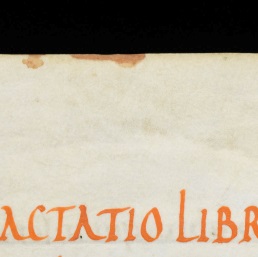 ACTATIO LIBR